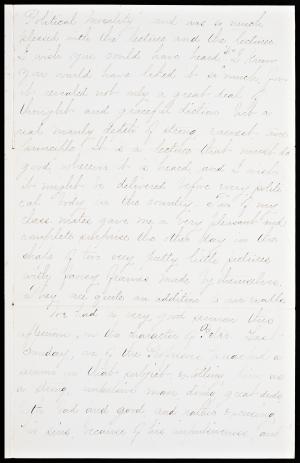 Political morality, and was so much
pleased with the lecture and the lecturer.
I wish you could have heard it. I know
you would have liked it so much, for
it revealed not only a great deal of
thought and graceful diction but a
real manly depth of strong earnest
principle. It is a lecture that must do
good wherever it is heard, and I wish
it might be delivered before every politi-
cal body in the country. of my
class mates gave me a very pleasant and
complete surprise the other day in the
shape of two very pretty little pictures
with fancy frames made by themselves.
They are quite an addition to our walls
We had a very good sermon this
afternoon, on the character of Last
Sunday, one of the Professors preached a
sermon on that subject, extolling him as
a strong, impulsive man doing great deeds
both bad and good and rather excusing
his sins, because of his impulsiveness, and